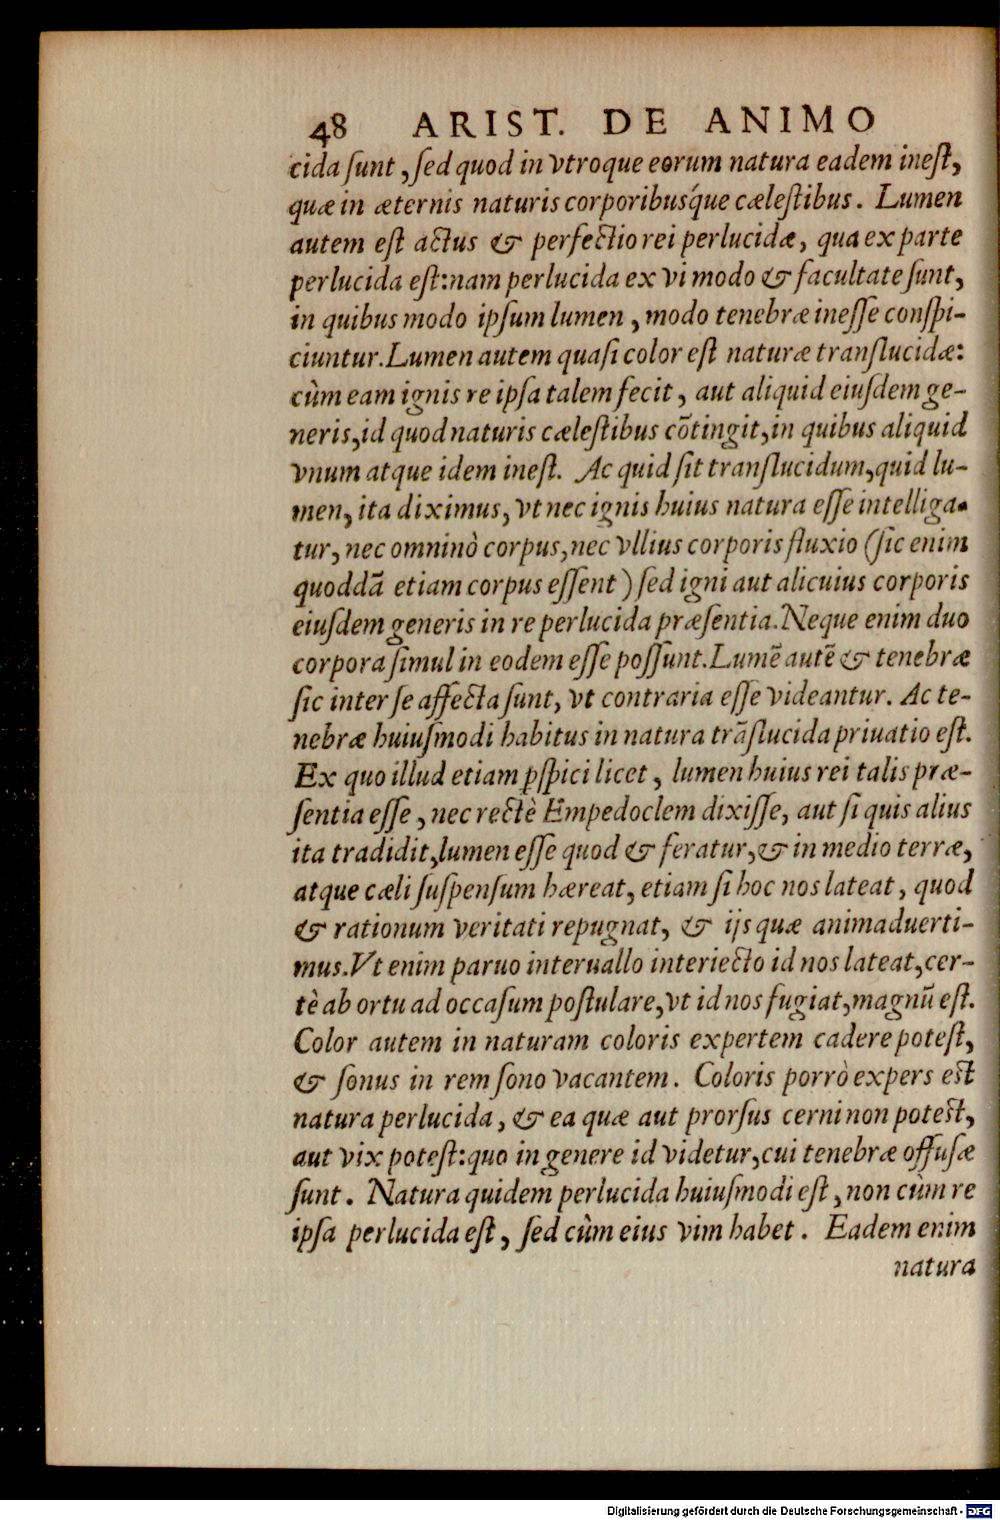 48 ARIST. DE ANIMO
cida ſunt, ſed quod in vtroque eorum natura eadem ineſt,
quæ in æternis naturis corporibusq́ue cæleſtibus. Lumen
autem eſt actus & perfectio rei perlucidæ, qua ex parte
perlucida eſt: nam perlucida ex vi modo & facultate ſunt,
in quibus modo ipſum lumen, modo tenebræ ineſſe conſpi-
ciuntur. Lumen autem quaſi color eſt naturæ tranſlucidæ:
cùm eam ignis re ipſa talem fecit, aut aliquid eiuſdem ge-
neris, id quod naturis cæleſtibus cõtingit, in quibus aliquid
vnum atque idem ineſt. Ac quid ſit tranſlucidum, quid lu-
men, ita diximus, vt nec ignis huius natura eſſe intelliga-
tur, nec omninò corpus, nec vllius corporis fluxio (ſic enim
quoddã etiam corpus eſſent) ſed igni aut alicuius corporis
eiuſdem generis in re perlucida præſentia. Neque enim duo
corpora ſimul in eodem eſſe poſſunt. Lumẽ autẽ & tenebræ
ſic inter ſe affecta ſunt, vt contraria eſſe videantur. Ac te-
nebræ huiuſmodi habitus in natura trãſlucida priuatio eſt.
Ex quo illud etiam ꝑſpici licet, lumen huius rei talis præ-
ſentia eſſe, nec rectè Empedoclem dixiſſe, aut ſi quis alius
ita tradidit, lumen eſſe quod & feratur, & in medio terræ,
atque cæli ſuſpenſum hæreat, etiam ſi hoc nos lateat, quod
& rationum veritati repugnat, & ijs quæ animaduerti-
mus. Vt enim paruo interuallo interiecto id nos lateat, cer-
tè ab ortu ad occaſum poſtulare, vt id nos fugiat, magnũ eſt.
Color autem in naturam coloris expertem cadere poteſt,
& ſonus in rem ſono vacantem. Coloris porrò expers eſt
natura perlucida, & ea quæ aut prorſus cerni non poteſt,
aut vix poteſt: quo in genere id videtur, cui tenebræ offuſæ
ſunt. Natura quidem perlucida huiuſmodi eſt, non cùm re
ipſa perlucida eſt, ſed cùm eius vim habet. Eadem enim
natura
Digitalisierung gefördert durch die Deutsche Forschungsgemeinschaft - DFG